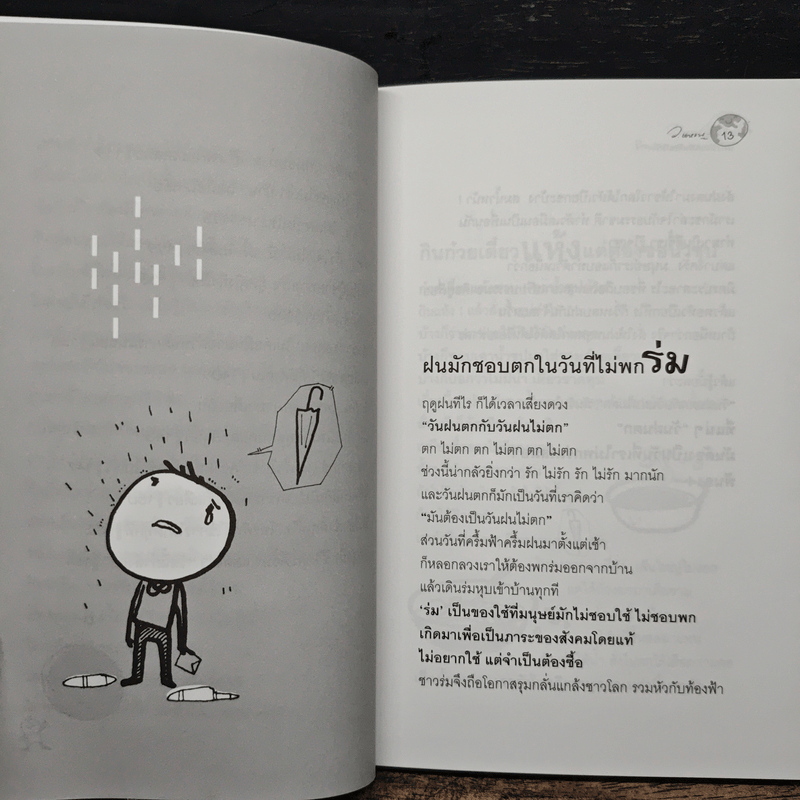 13
ฝนมักชอบตกในวันที่ไม่พกร่ม
ฤดูฝนทีไร ก็ได้เวลาเสี่ยงดวง
“วันฝนตกกับวันฝนไม่ตก”
ตก ไม่ตก ตก ไม่ตก ตก ไม่ตก
ช่วงนี้น่ากลัวยิ่งกว่า รัก ไม่รัก รัก ไม่รัก มากนัก
และวันฝนตกก็มักเป็นวันที่เราคิดว่า
“มันต้องเป็นวันฝนไม่ตก”
ส่วนวันที่ครึ้มฟ้าครึ้มฝนมาตั้งแต่เช้า
ก็หลอกลวงเราให้ต้องพกร่มออกจากบ้าน
แล้วเดินร่มหุบเข้าบ้านทุกที
‘ร่ม’ เป็นของใช้ที่มนุษย์มักไม่ชอบใช้ ไม่ชอบพก
เกิดมาเพื่อเป็นภาระของสังคมโดยแท้
ไม่อยากใช้ แต่จำเป็นต้องซื้อ
ชาวร่มจึงถือโอกาสรุมกลั่นแกล้งชาวโลก รวมหัวกับท้องฟ้า